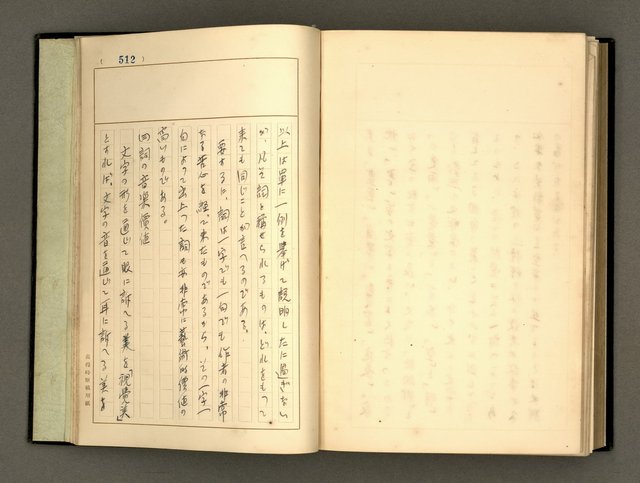 (512)
以上は單に一例を擧げて説明したに過ぎない
が、凡そ詞と稱せられてるものは、どれをもつて
來ても同じこと が言へるのである。
要するに、詞は一字でも一句でも作者の非常
なる苦心を經て來たものであるから、その一字一
句によつて出上つた詞も亦非常に藝術的價値の
高いものである。
四詞の音樂價値
文字の形を通じて眼に訴へる美を「視覺美」
とすれば、文字の音を通じて耳に訴へる美を